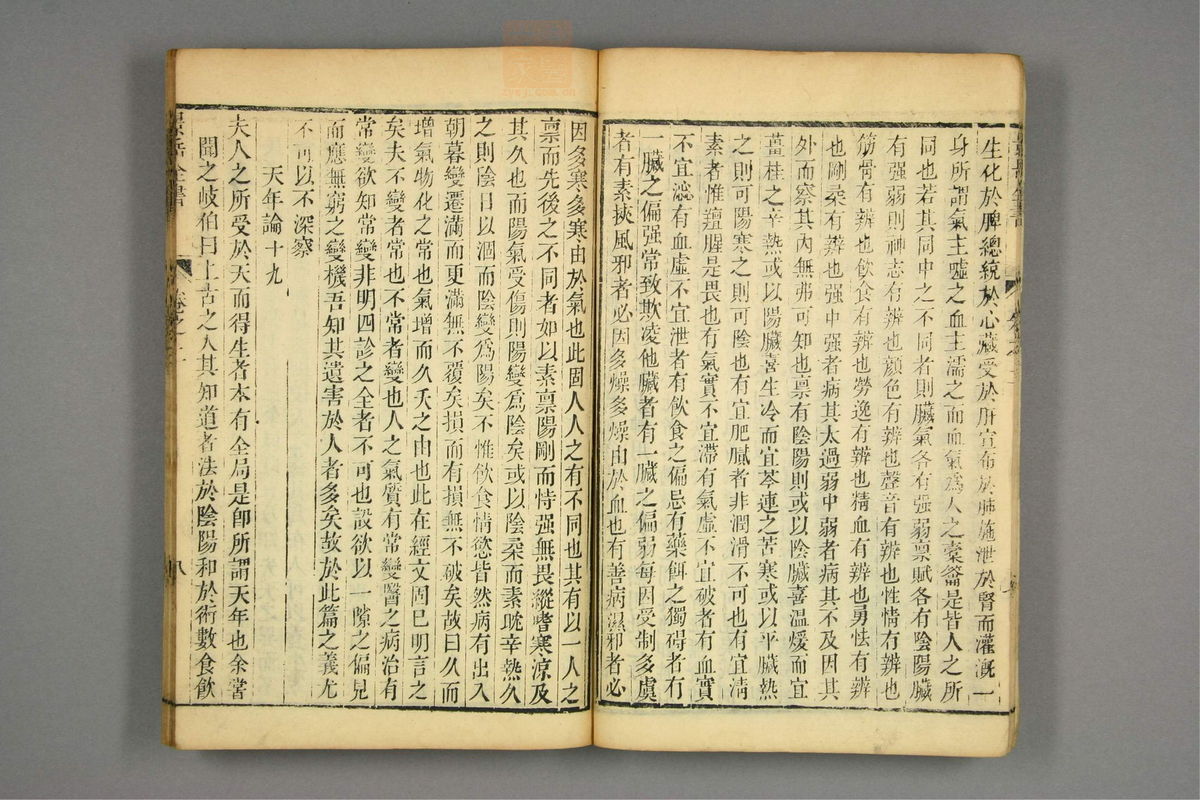 生化於脾總統於心藏受於肝宣布於肺施泄於腎而灌溉一
身所謂氣主噓之血主濡之而血氣爲人之橐籥是皆人之所
同也若其同中之不同者則臟氣各有强弱禀賦各有陰陽臟
有强弱則神志有辨也顔色有辨也聲音有辨也性情有辨也
筋骨有辨也飲食有辨也勞逸有辨也精血有辨也勇怯有辨
也剛柔有辨也强中强者病其太過弱中弱者病其不及因其
外而察其內無弗可知也禀有陰陽則或以陰臟喜温煖而宜
薑桂之辛熱或以陽臟喜生冷而宜芩連之苦寒或以平臟熱
之則可陽寒之則可陰也有宜肥膩者非潤滑不可也有宜淸
素者惟羶腥是畏也有氣實不宜滯有氣虛不宜破者有血實
不宜澁有血虛不宜泄者有飲食之偏忌有藥餌之獨碍者有
一臟之偏强常致欺凌他臟者有一臟之偏弱每因受制多虞
者有素挾風邪者必因多燥多燥由於血也有善病濕邪者必
因多寒多寒由於氣也此固人人之有不同也其有以一人之
禀而先後之不同者如以素禀陽剛而恃强無畏縱嗜寒凉及
其久也而陽氣受傷則陽變爲陰矣或以陰柔而素躭辛熱久
之則陰日以涸而陰變爲陽矣不惟飲食情慾皆然病有出入
朝暮變遷滿而更滿無不覆矣損而有損無不破矣故曰久而
增氣物化之常也氣增而久夭之由也此在經文固巳明言之
矣夫不變者常也不常者變也人之氣質有常變醫之病治有
常變欲知常變非明四診之全者不可也設欲以一隙之偏見
而應無窮之變機吾知其遺害於人者多矣故於此篇之義尤
不可以不深察
天年論十九
夫人之所受於天而得生者本有全局是卽所謂天年也余嘗
聞之岐伯曰上古之人其知道者法於陰陽和於術數食飲
景岳全書
卷之二
八